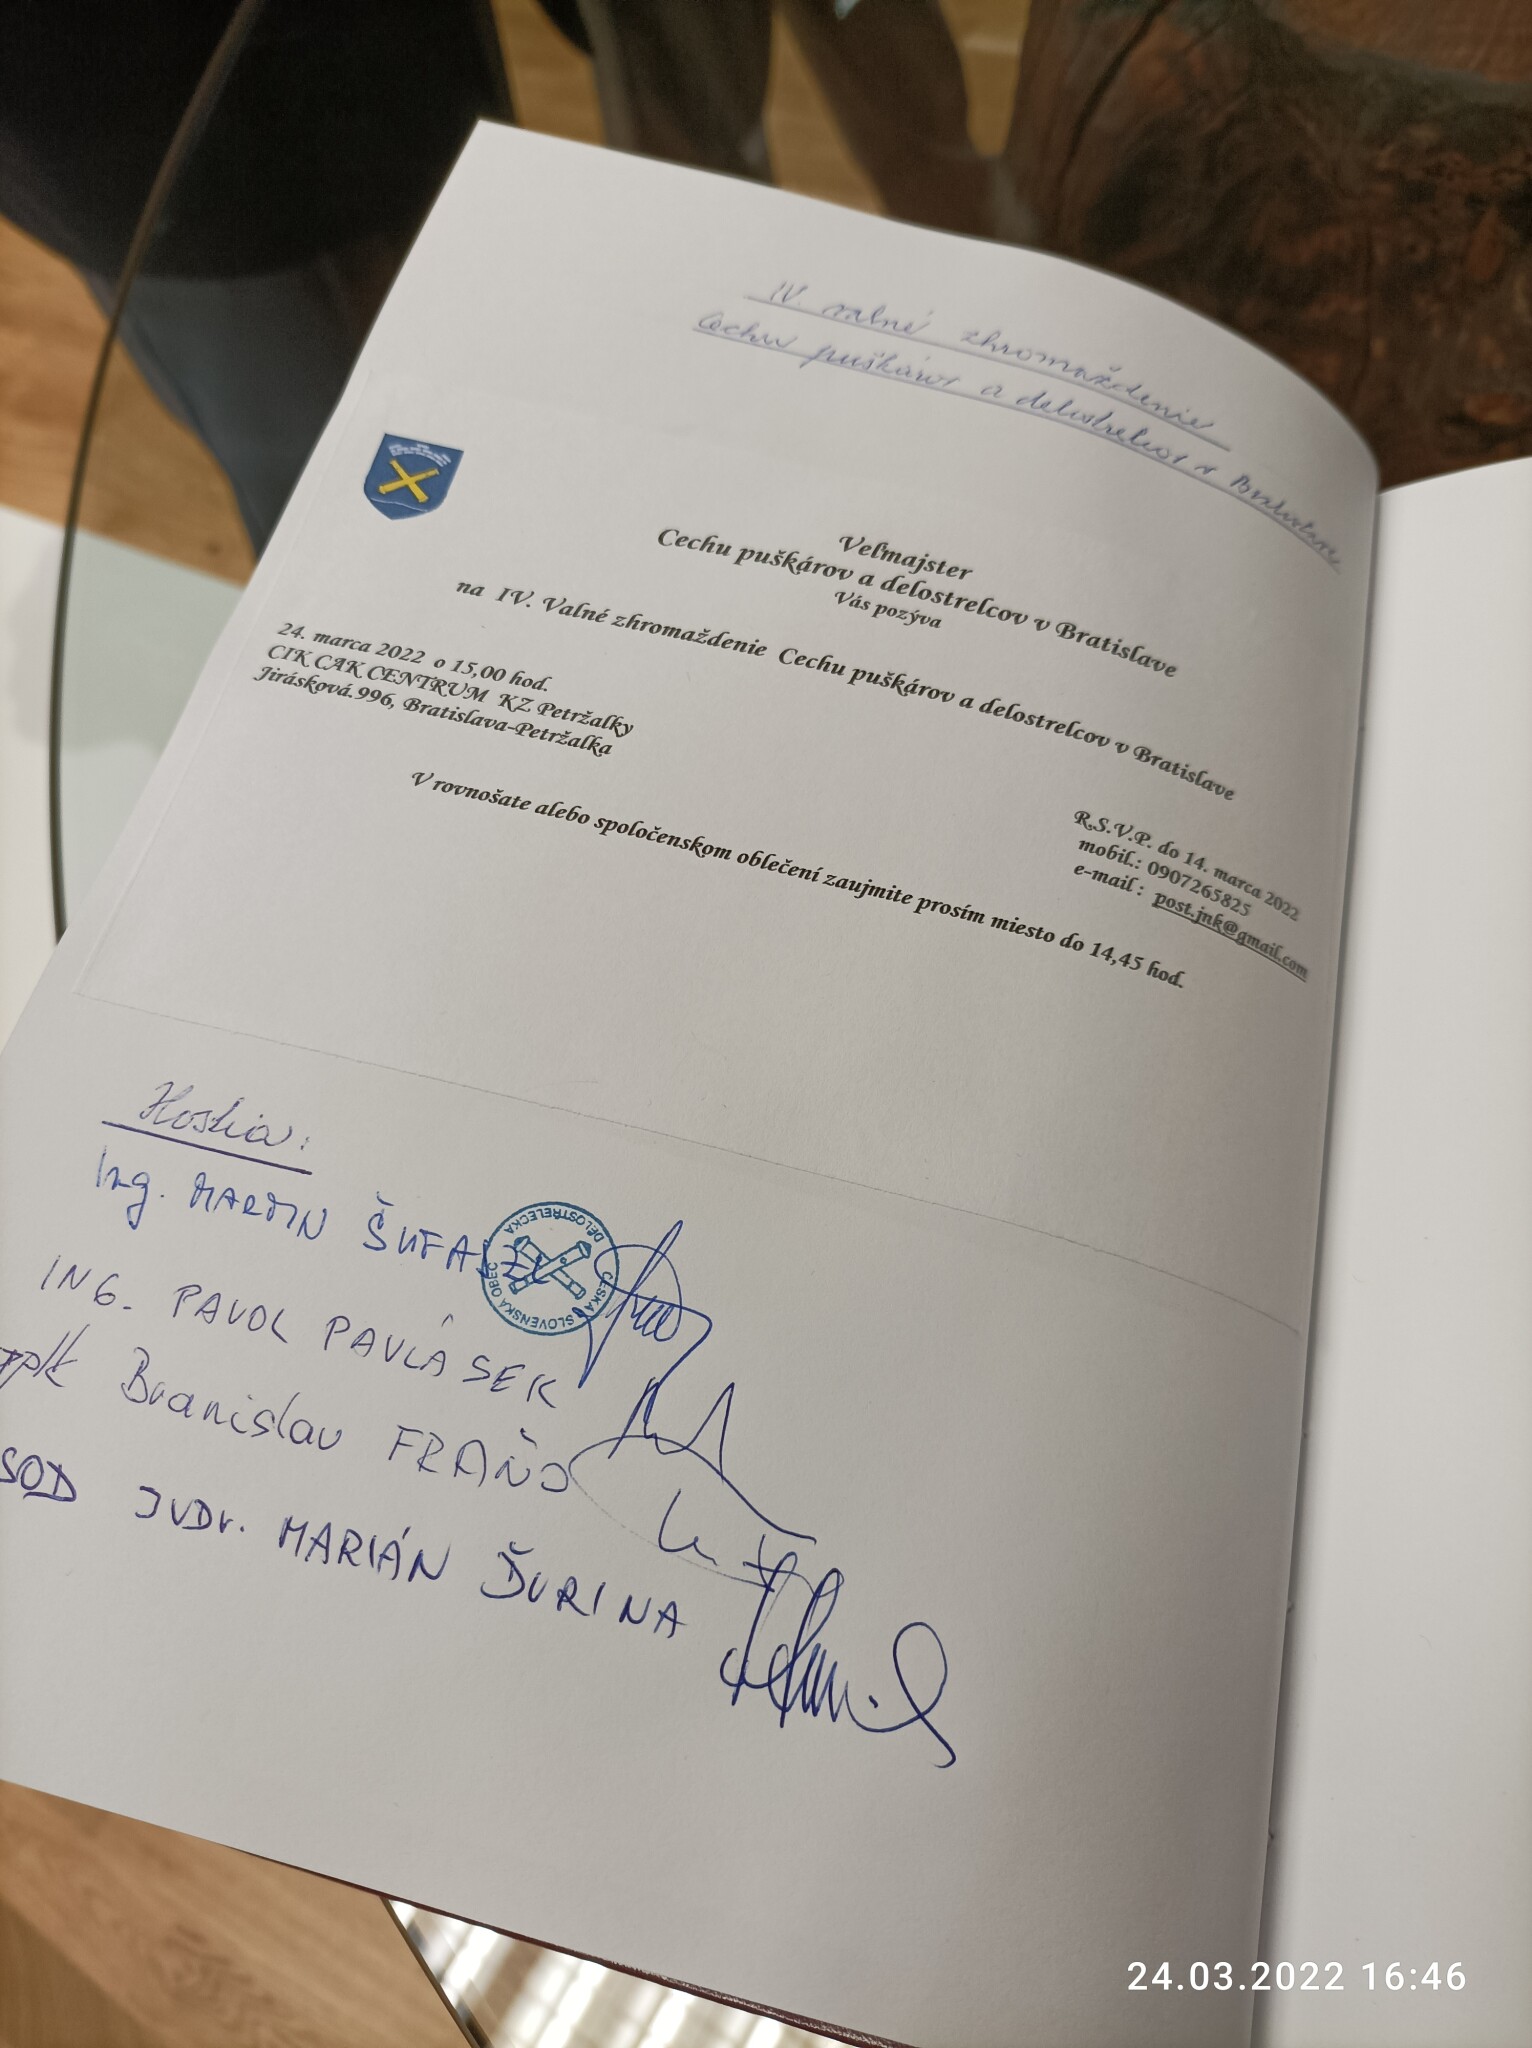 IV. valné zhromaždenie
Cechu puškárov a delostrelcov v Bratislave
Veľmajster
Cechu puškárov a delostrelcov v Bratislave
Vás pozýva
na IV. Valné zhromaždenie Cechu puškárov a delostrelcov v Bratislave
24. marca 2022 o 15,00 hod.
CIK CAK CENTRUM KZ Petržalky
Jirásková.996, Bratislava-Petržalka
R.S.V.P. do 14. marca 2022
mobil.: 0907265825
e-mail : post.jnk@gmail.com
V rovnošate alebo spoločenskom oblečení zaujmite prosím miesto do 14,45 hod.
Hostia:
Ing. MARTIN
ČESKÁ A SLOVENSKÁ OBEC DELOSTRELECKÁ
ING. PAVOL PAVLÁSEK
pplk Branislav FRAŇO
SOD JUDr. MARIÁN ĎURINA
24.03.2022 16:46